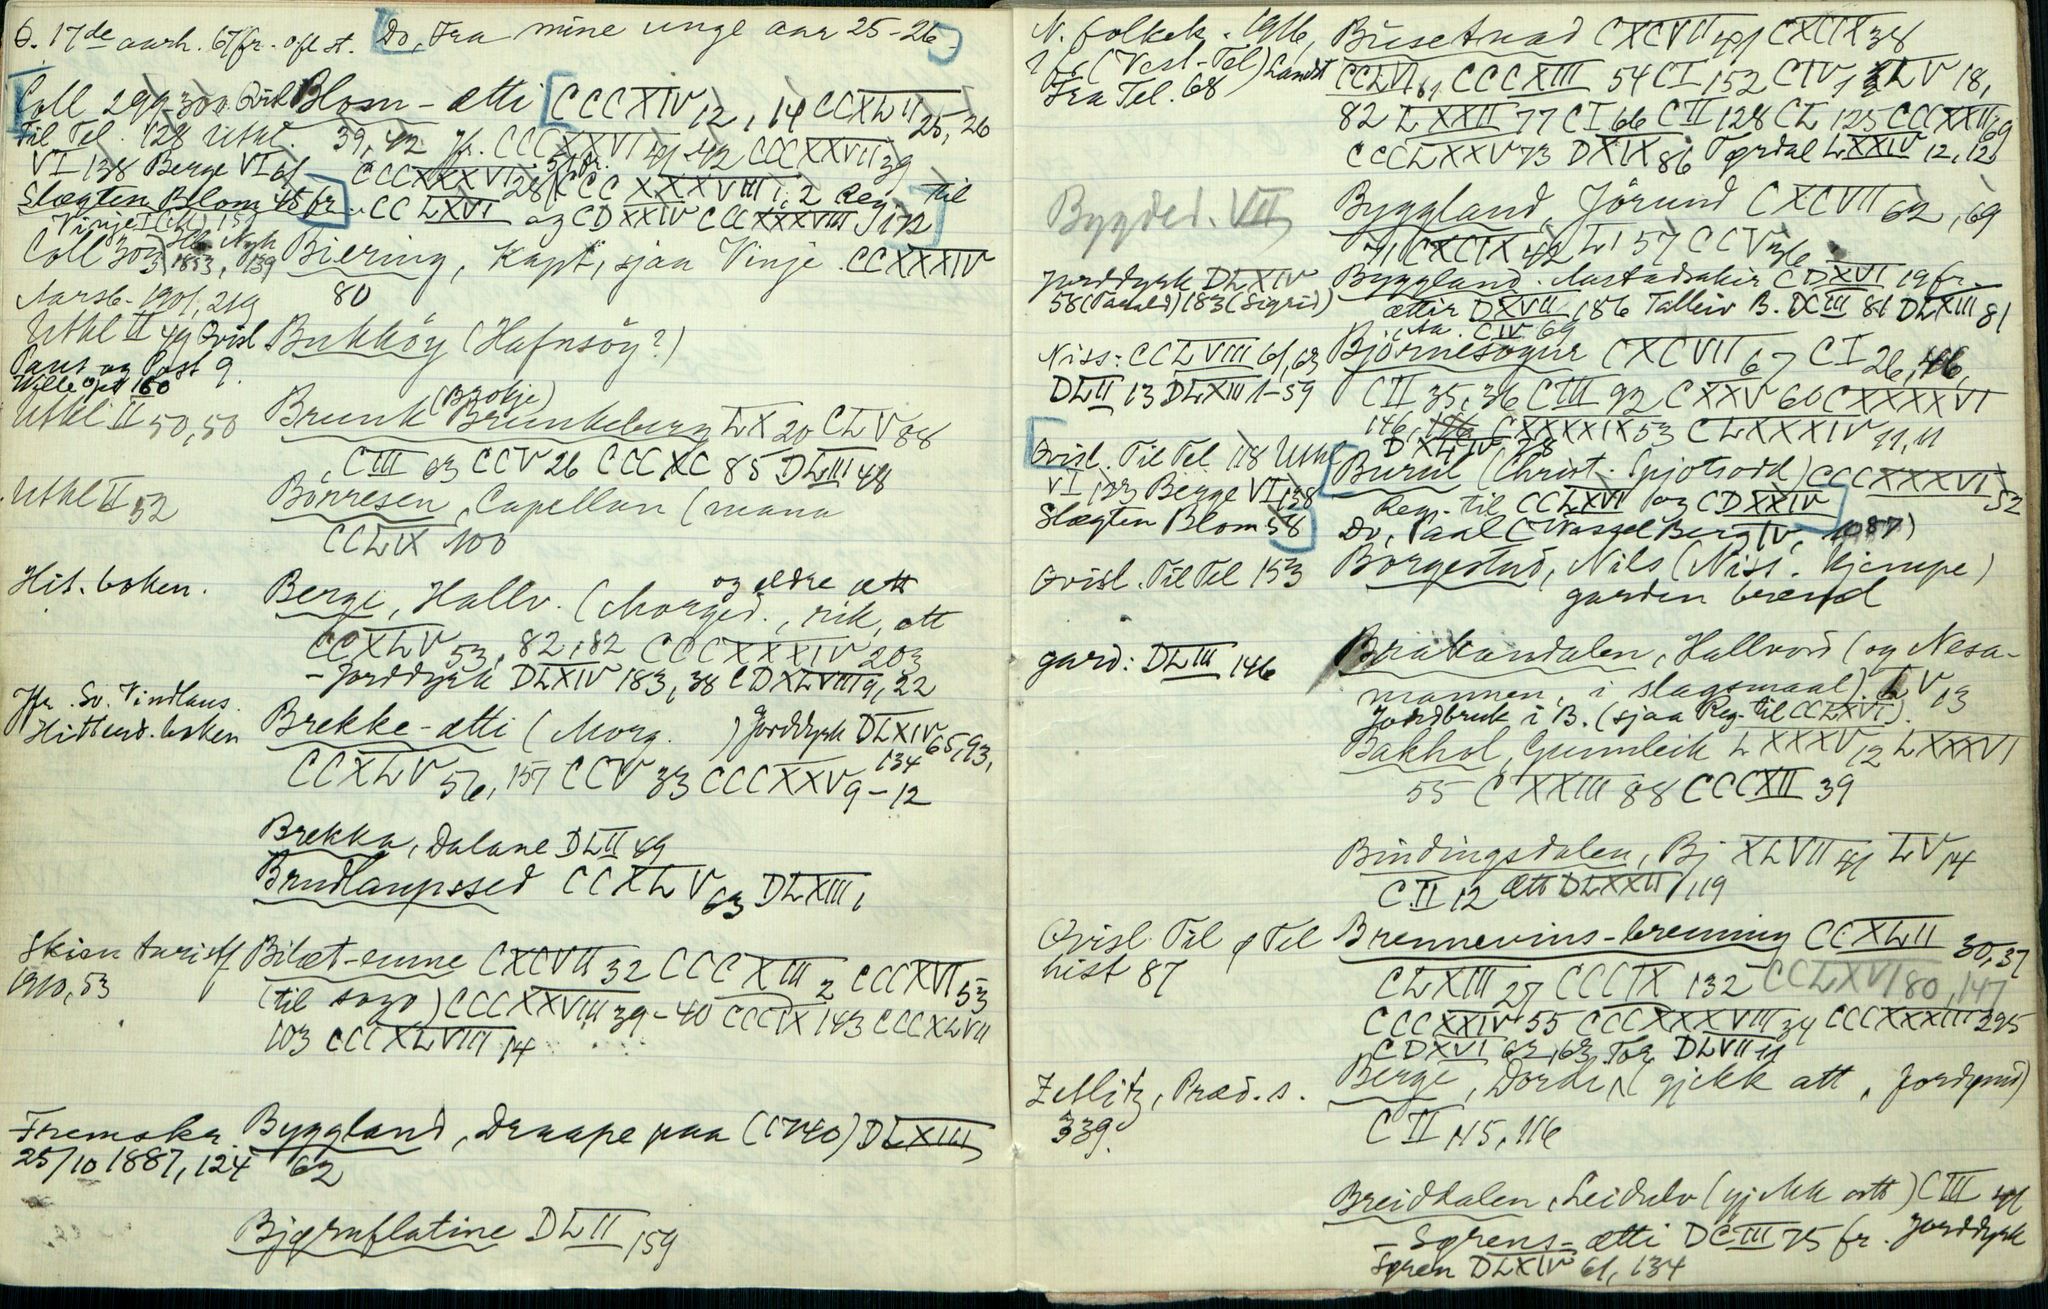 6. 17de aarh. 67fr. ofl st. Do, Fra mine unge aar 25-26
Coll 299 300 Qvisl Blom-ætti CCCXIV 12, 14 CCXLII 25, 26
Til Tel. 128 Utkl. 39, 42 Jfr. CCCXXVI 41-42 CCCXXVII 39
VI 138 Berge VI 61 CCCXXXVI 28 CCCXXXVIII 1, 2 Reg til
Slægten Blom 45 fr CCLXVI og CDXXIV CCCXXXVIII 172
Coll 303 1853, 139 Biering, Kapt, sjaa Vinje CCXXXIV
Aarsb. 1901, 219 80
Utkl II 49 Qvisl Bukkøy (Hafnsøy?)
Paus og Post 9.
Wille opt 180
Utkl II 50, 50 Brunk Brunkeberg LX 20 CLV 88
CIII 63 CCV 26 CCCXC 85 DLIII 48
Utkl II 52 Børresen, Capellan (mana
CCLIX 100
Hit. boken. Berge, Hallv. (Morged., rik, ætt
og eldre ætt
CCXLV 53, 82, 82 CCCXXXIV 203
- Jorddyrk DLXIV 183, 38 CDXLVIII 9, 22
Jfr. Sv. Vindlaus.
Hitterd. boken Brekke-ætti (Morg. ) Jorddyrk DLXIV 65, 93,
134
CCXLV 56, 157 CCV 33 CCCXXV 9-12
Brekka, Dalane DLII 49
Brudlaupssed CCXLV 63 DLXIII 1
Skien turistf Bilæt-emne CXCVII 32 CCCXIII 2 CCCXVI 53
1910, 53 (til sogo) CCCXXVIII 39-40 CCCIX 143 CCCXLVII
103 CCCXLVIII 14
Fremskr. Byggland, Draape paa (1740) DLXIII
25/10 1887, 124 62
Bjørnflatine DLII 159
N. folkek. 1916, Busetnad CXCVII 41 CXCIX 38
(Vest-Tel) Landst CCLVI 61 CCCXIII 54 CI 152 CIV 1 XLV 18,
Fra Tel. 68
82 LXXII 77 CI 66 CII 128 CL 125 CCCXXII 69
CCCLXXV 73 DXIX 86 Tørdal LXXIV 12, 12
Bygded. VII Byggland, Jørund CXCVII 62, 69
71 CXCIX 42 LI 57 CCV 36
Jorddyrk DLXIV Byggland. Aastadsakir CDXVI 19 fr.
58 (Tarald) 183 (Sigrid) ættir DXVII 186 Talleiv B. DCIII 81 DLXIII 81
Aa. CIV 69
Niss: CCLVIII 61, 63 Bjørnesogur CXCVII 67 CI 26, 46,
DLII 13 DLXIII 1-59 CII 35, 36 CIII 92 CXXV 60 CXXXXVI
146, CXXXXIX 53 CLXXXIV 11, 11
DXLIV 28
Qvisl. Til Tel 118 Utkl Buril (Christ. Spjotsodd) CCCXXXVI 52
VI 123 Berge VI 138 Reg. til CCLXVI og CDXXIV
Slægten Blom 58 Do, Paal (Nossel Berg IV, 187)
Qvisl. Til Tel 153 Borgestad, Nils (Niss. kjempe)
garden brend
gard: DLIII 146 Brabandalen, Hallvord (og Nesa-
mannen, i slagsmaal). LV 13
Jordbruk i B. (sjaa Reg. til CCLXVI).
Bakhol, Gunnleik LXXXV 12 LXXXVI
55 CXXIII 88 CCCXII 39
Bindingsdalen, Bj XLVII 41 LV 14
CII 12 Ætt DLXXII 119
Qvisl. Til Tel Brennevins-brenning CCXLII 30, 37
hist 87 CLXIII 27 CCCIX 132 CCLXVI 80, 147
CCCXXIV 55 CCCXXXVIII 34 CCCXXXIII 295
CDXVI 62, 63 Tor DLVII 11
Zetlitz, Præd. s. Berge, Dordi (gjekk att, Jordgu)
339. CII 115, 116
Breidkalen, Leidulv (gjekk att) CIII 41
- Sørens-ætti DCIII 75 fr. Jorddyrk
Søren DLXIV 61, 134